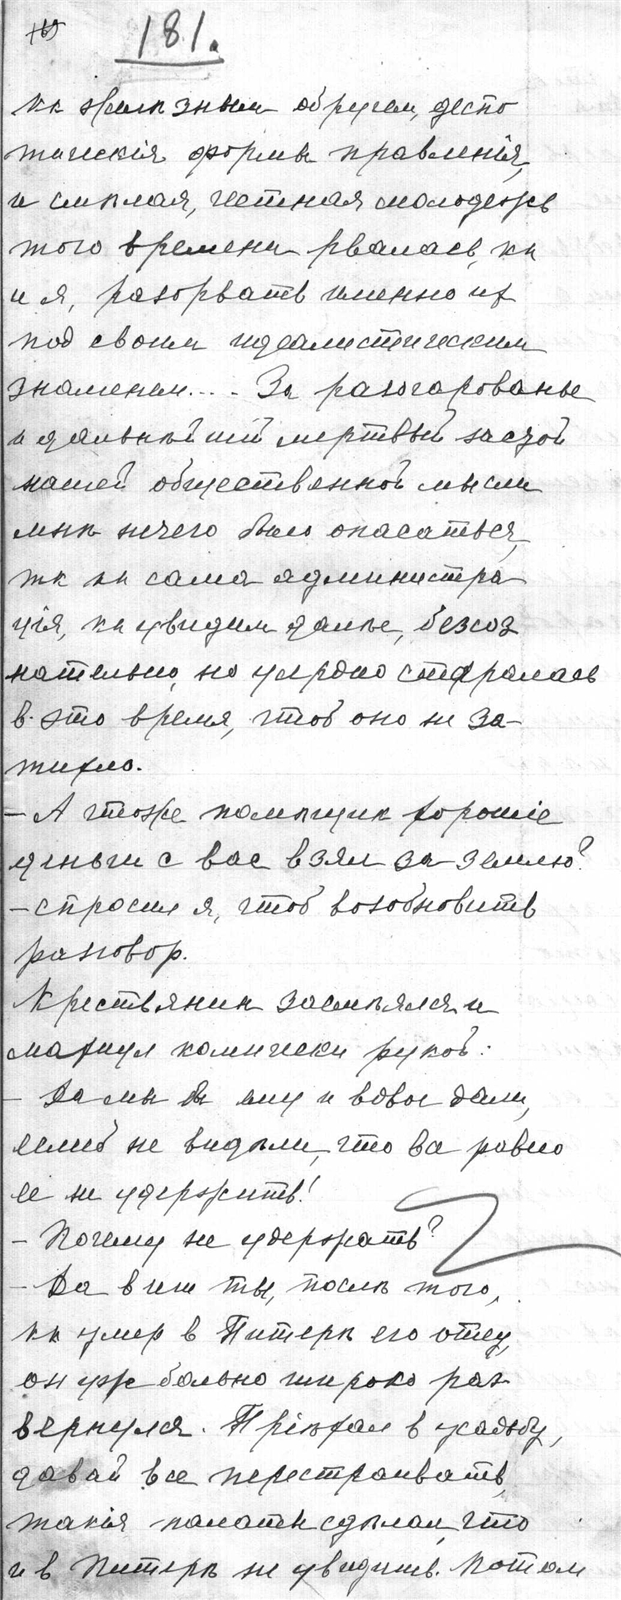 169
181.
кк желѣзным обручем, деспо
тическія формы правленія,
и смѣлая, честная молодежь
того времени рвалась, кк
и я, разорвать именно их
под своим идеалистическим
знаменем.... За разочарованье
и дальнѣйшій мертвый застой
нашей общественной мысли
мнѣ нечего было опасаться,
тк кк сама администра
ція, кк увидим далѣе, безсоз
нательно, но усердно старалась
в это время, чтоб оно не за-
тихло.
– А чтоже помѣщик хорошіе
деньги с вас взял за землю?
– спросил я, чтоб возобновить
разговор.
Крестьянин засмѣялся и
махнул комически рукой:
– Да мы бы ему и вдвое дали,
еслиб не видѣли, что все равно
ее не удержить!
– Почему не удержать?
– Да виш ты, послѣ того,
кк умер в Питерѣ его отец,
он уж больно широко раз
вернулся. Пріѣхал в усадьбу,
давай все перестраивать,
такія палаты сдѣлал, что
и в Питерѣ не увидишь. Потом